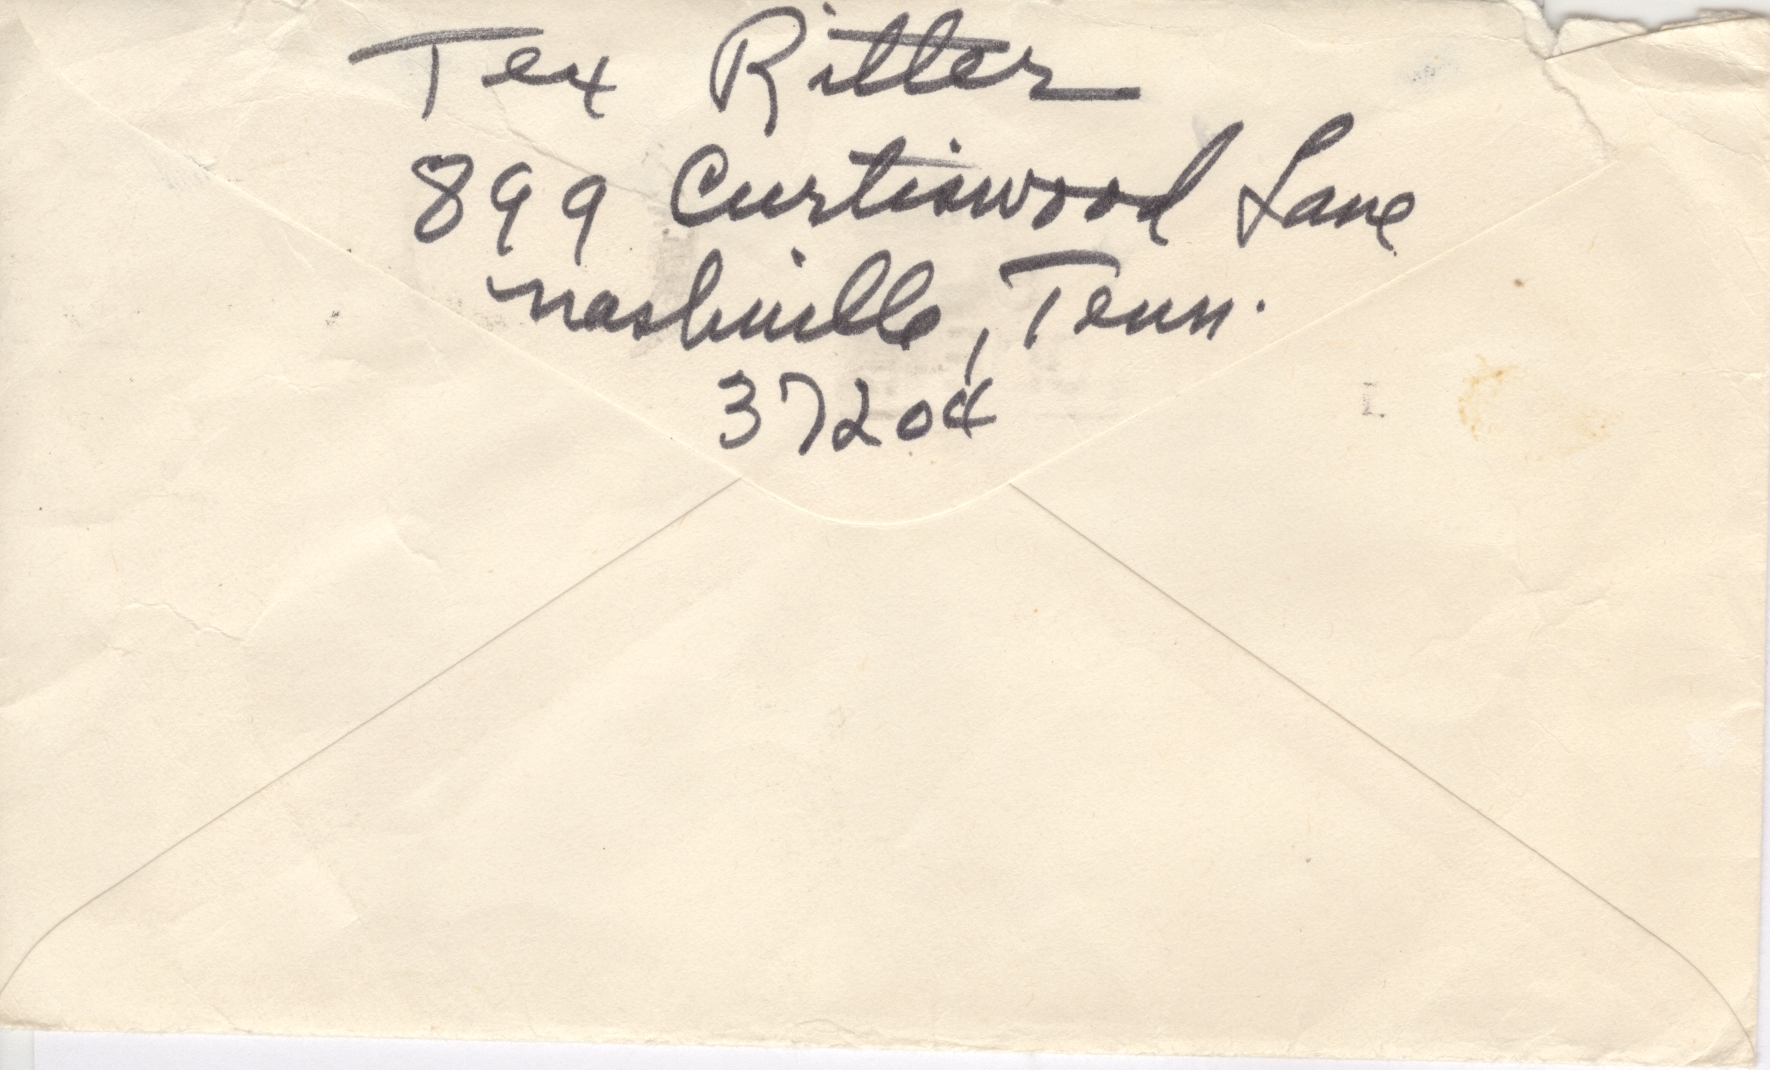 Tex Ritter
899 Curtiswood Lane
Nashville, Tenn.
37204